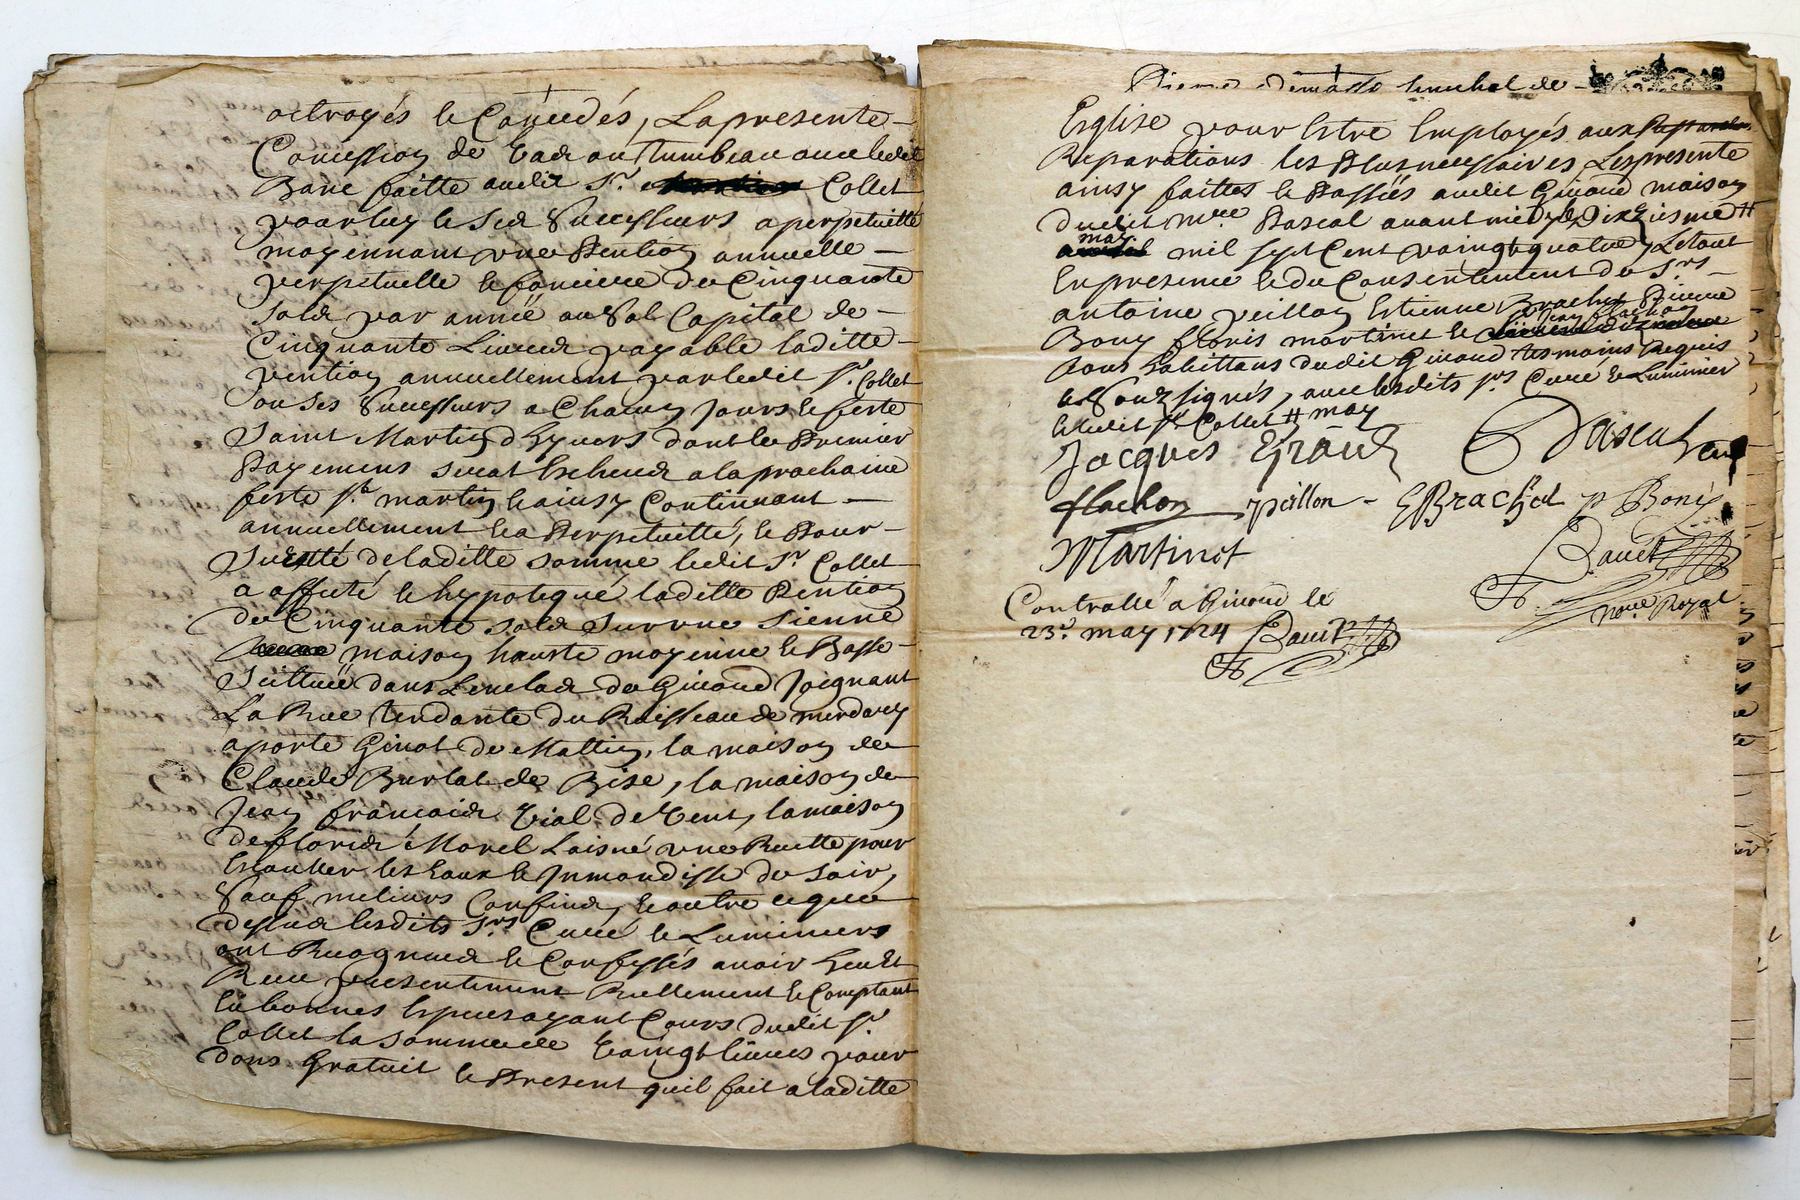 octroyés et Concedés, La presente
Concession de Vas ou Tumbeau avec ledit
Banc faitte audit Sr. Collet
pour luy et ses Successeurs a perpetuitté
moyennant une Pention annuelle
perpetuelle et fonciere de Cinquante
sols par année au Sol Capital de
Cinquante Livres payable laditte
pention annuellement par ledit Sr. Collet
ou ses Successeurs a Chacun Jours et feste
Saint Martin d'hyvers dont le Premier
Payement sera Escheus a la prochaine
feste St. martin et ainsy Continuant
annuellement et a Perpetuitté, et Pour
Sureté de laditte somme ledit Sr. Collet
a affecté et hypotequé laditte Pention
de Cinquante sols sur une sienne
maison hauste moyenne et Basse
Scittuée dans Lenclos de Givord Joignant
La Rue Tendante du Ruisseau de merdary
a porte Ginot de Mattin, la maison de
Claude Burlat de Bise, la maison de
Jean francois Vial de Vent, la maison
de floris Morel Laisné une Ruette pour
Escouller les Eaux et Jnmondisse de soir,
Sauf meliurs Confins, et outre ce que
dessus lesdits Srs. Curé et Luminiers
ont Recognus et Confessés avoir heu et
Receu presentement Reellement et Comptant
En bonnes Especes ayant Cours dudit Sr.
Collet la somme de Vaingt livres pour
dons Gratuit et Present quil fait a laditte
Pierre senechal de
Esglise pour Estre Employés aux
Reparations les Plus necessaires Les presente
ainsy faittes et Passées audit Givord maison
dudit mre Pascal avant midy le Dix #
may
mil sept Cent vaingt quatre, Le tout
En presence et du Consentement de Srs
antoine peillon Estienne Brachet Pierre
Jean flachon
Bony floris martinet et
tous habittans dudit Givord tesmoins Requis
et Soubzsignés, avec lesdits Srs Curé et Luminier
et ledit Sr Collet # may
Jacques Giraud Pascal Curé
flachon peillon EBrachet p Bony
Martinet
Bauet
nore Royal
Contrallé a Givord le
23e. may 1724 Bauet